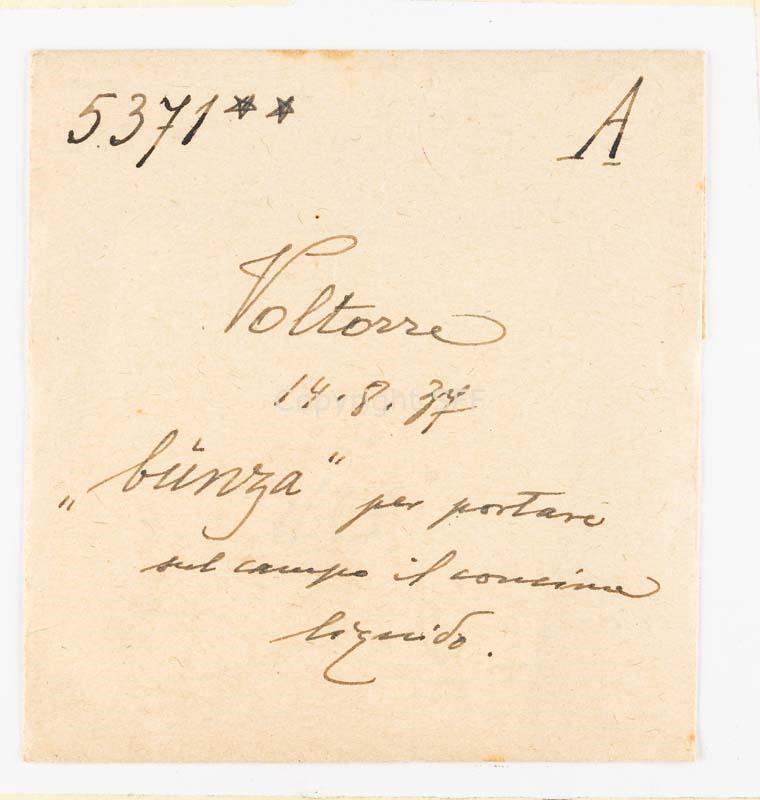 5371** A
Voltorre
14.8.37
„bünza" per portare
sul campo il concime
liquido.